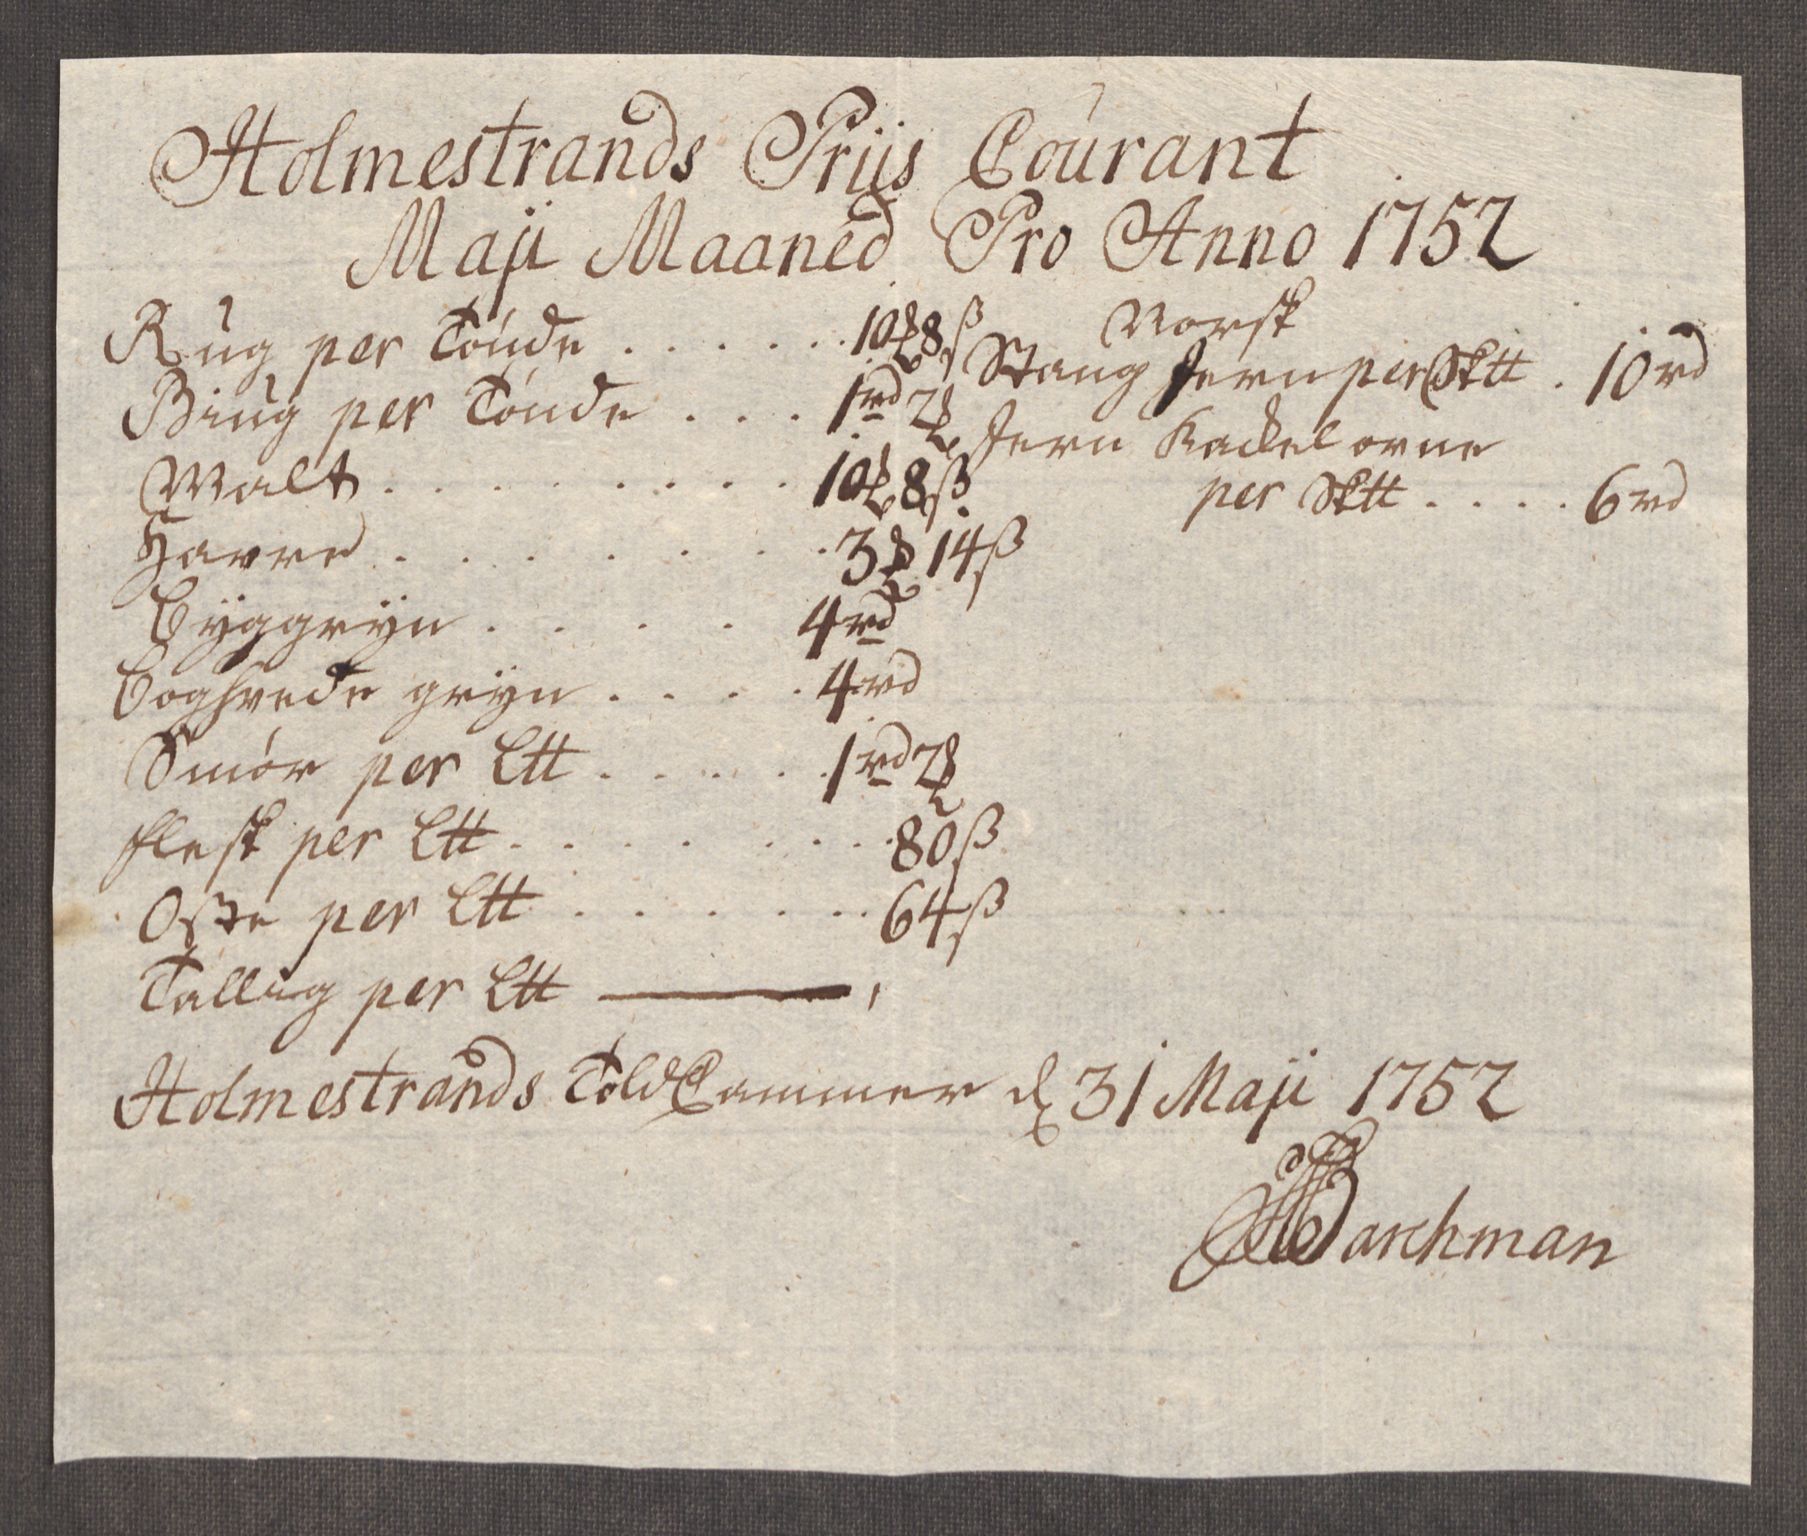 Holmestrands Priis Courant
Maji Maaned Pro Anno 1752
Rug per Tönde . . . . . . 10 8ß
Biug per Tönde . . . . 1rd 2
Malt . . . . . . . . . 10 8ß
Havre . . . . . . . . 3 14ß
Byggryn . . . . . 4rd
Boghvede gryn . . . . 4rd
Smör per Ltt . . . . . 1rd 2
Flesk per Ltt . . . . . . . . 80ß
Oste per Ltt . . . . . . . 64ß
Tallig per Ltt ———
Norsk
Stang Jern per Sktt . 10rd
Jern Kackel ovne
per Sktt . . . . 6rd
Holmestrands Told Cammer d 31 Maji 1752
Barchman